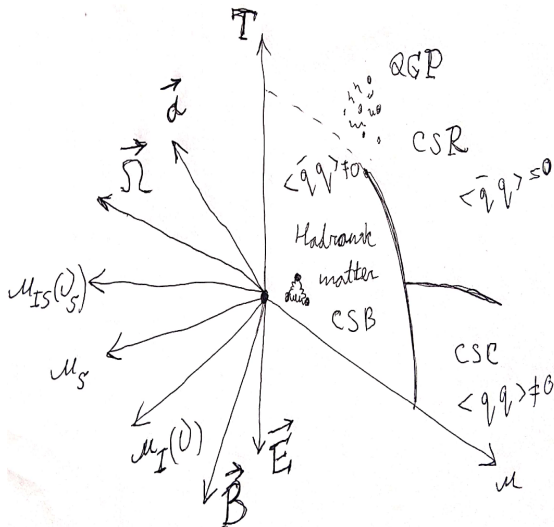 T
QGP
α⃗
CSR
Ω⃗
<q̄q>≠0
<q̄q>≤0
Hadronic
matter
μ_IS(ν_5)
CSB
μ_5
CSC
<qq>≠0
μ_I(ν)
E⃗
B⃗
μ